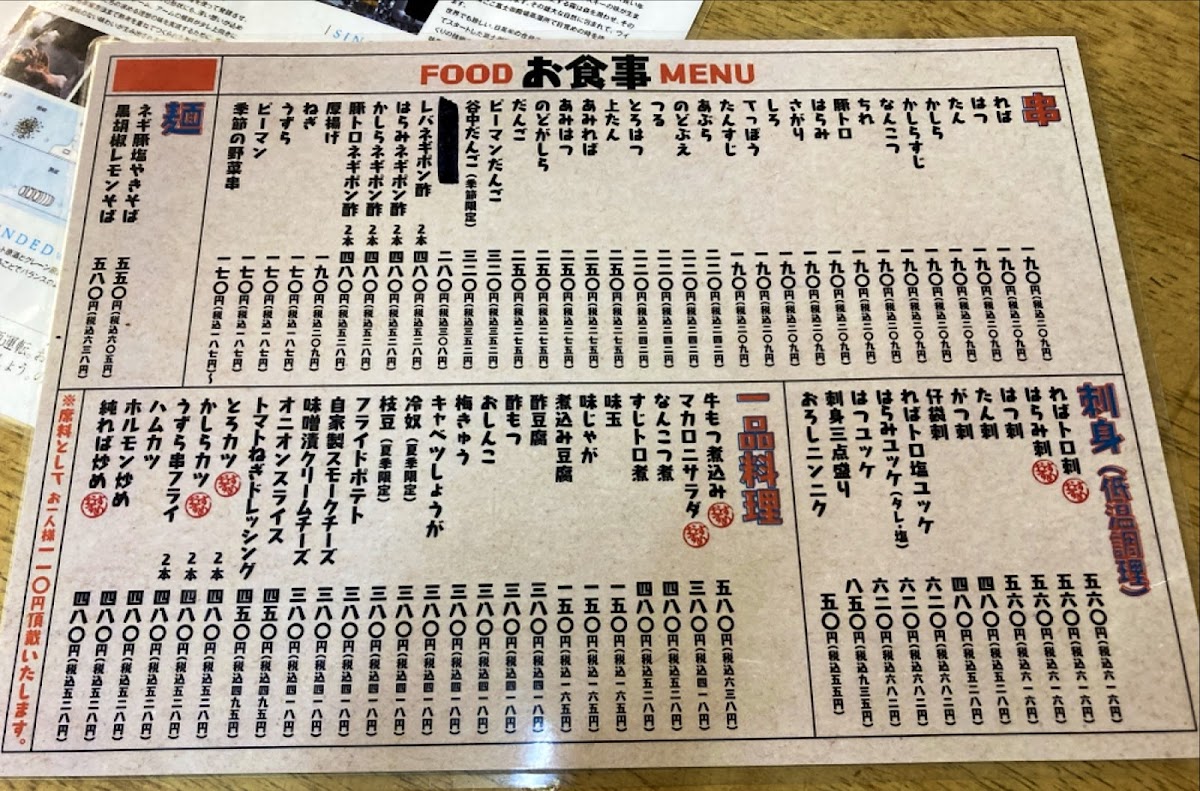 FOOD お食事 MENU
串
れば 一九〇円(税込二〇九円)
はつ 一九〇円(税込二〇九円)
たん 一九〇円(税込二〇九円)
かしら 一九〇円(税込二〇九円)
かしらすじ 一九〇円(税込二〇九円)
なんこつ 一九〇円(税込二〇九円)
ちれ 一九〇円(税込二〇九円)
豚トロ 一九〇円(税込二〇九円)
はらみ 一九〇円(税込二〇九円)
さがり 一九〇円(税込二〇九円)
しろ 一九〇円(税込二〇九円)
てっぽう 一九〇円(税込二〇九円)
たんすじ 一九〇円(税込二〇九円)
あぶら 二二〇円(税込二四二円)
のどぶえ 二二〇円(税込二四二円)
つる 二二〇円(税込二四二円)
とろはつ 二二〇円(税込二四二円)
上たん 二五〇円(税込二七五円)
あみれば 二五〇円(税込二七五円)
あみはつ 二五〇円(税込二七五円)
のどがしら 二五〇円(税込二七五円)
だんご 二五〇円(税込二七五円)
ピーマンだんご 三二〇円(税込三五二円)
谷中だんご(季節限定) 三二〇円(税込三五二円)
二八〇円(税込三〇八円)
レバネギポン酢 2本 四八〇円(税込五二八円)
はらみネギポン酢 2本 四八〇円(税込五二八円)
かしらネギポン酢 2本 四八〇円(税込五二八円)
豚トロネギポン酢 2本 四八〇円(税込五二八円)
厚揚げ 一九〇円(税込二〇九円)
ねぎ 一七〇円(税込一八七円)
うずら 一七〇円(税込一八七円)
ピーマン 一七〇円(税込一八七円)
季節の野菜串 一七〇円(税込一八七円)〜
麺
ネギ豚塩やきそば 五五〇円(税込六〇五円)
黒胡椒レモンそば 五八〇円(税込六三八円)
刺身(低温調理)
ればトロ刺 五六〇円(税込六一六円)
はらみ刺 五六〇円(税込六一六円)
はつ刺 五六〇円(税込六一六円)
たん刺 五六〇円(税込六一六円)
がつ刺 四八〇円(税込五二八円)
仔袋刺 四八〇円(税込五二八円)
ればトロ塩ユッケ 六二〇円(税込六八二円)
はらみユッケ(タレ・塩) 六二〇円(税込六八二円)
はつユッケ 六二〇円(税込六八二円)
刺身三点盛り 八五〇円(税込九三五円)
おろしニンニク 五〇円(税込五五円)
一品料理
牛もつ煮込み 五八〇円(税込六三八円)
マカロニサラダ 三八〇円(税込四一八円)
なんこつ煮 四八〇円(税込五二八円)
すじトロ煮 四八〇円(税込五二八円)
味玉 一五〇円(税込一六五円)
味じゃが 一五〇円(税込一六五円)
煮込み豆腐 一五〇円(税込一六五円)
酢豆腐 三八〇円(税込四一八円)
酢もつ 三八〇円(税込四一八円)
おしんこ 三八〇円(税込四一八円)
梅きゅう 三八〇円(税込四一八円)
キャベツしょうが 三八〇円(税込四一八円)
冷奴(夏季限定) 三八〇円(税込四一八円)
枝豆(夏季限定) 三八〇円(税込四一八円)
フライドポテト 三八〇円(税込四一八円)
自家製スモークチーズ 三八〇円(税込四一八円)
味噌漬クリームチーズ 三八〇円(税込四一八円)
オニオンスライス 四五〇円(税込四九五円)
トマトねぎドレッシング 四五〇円(税込四九五円)
とろカツ 2本 四八〇円(税込五二八円)
かしらカツ 2本 四八〇円(税込五二八円)
うずら串フライ 2本 四八〇円(税込五二八円)
ハムカツ 四八〇円(税込五二八円)
ホルモン炒め 四八〇円(税込五二八円)
純れば炒め 四八〇円(税込五二八円)
※席料として お一人様一一〇円頂戴いたします。